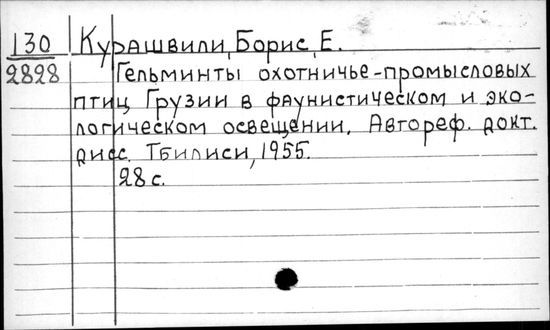 130 Курашвили, Борис, Е.
2828 Гельминты охотничье-промысловых
птиц Грузии в фаунистическом и эко-
логическом освещении. Автореф. докт.
дисс. Тбилиси, 1955.
28 с.